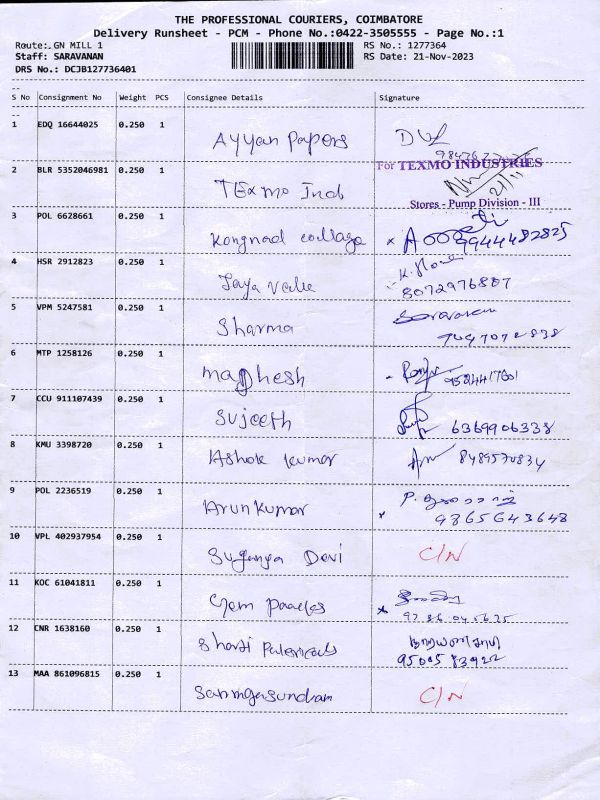 THE PROFESSIONAL COURIERS, COIMBATORE
Delivery Runsheet - PCM - Phone No.:0422-3505555 - Page No.:1
Route:.GN MILL 1 RS No.: 1277364
Staff: SARAVANAN RS Date: 21-Nov-2023
DRS No.: DCJB127736401
S No Consignment No Weight PCS Consignee Details Signature
1 EDQ 16644025 0.250 1 Ayyan Papers
For TEXMO INDUSTRIES
2 BLR 5352046981 0.250 1 TExmo Ind 21/11
Stores - Pump Division - III
3 POL 6628661 0.250 1 Kongnad collage 9944482825
4 HSR 2912823 0.250 1 Jaya
8072976887
5 VPM 5247581 0.250 1 Sharma Saravanan
6 MTP 1258126 0.250 1 maghesh
7 CCU 911107439 0.250 1 Sujeeth 6369906338
8 KMU 3398720 0.250 1 Ashok kumar 8489570834
9 POL 2236519 0.250 1 Arun kumar
9865643648
10 VPL 402937954 0.250 1 Suganya Devi C/N
11 KOC 61041811 0.250 1 Gem
12 CNR 1638160 0.250 1
9500583922
13 MAA 861096815 0.250 1 Sanmgasundram C/N